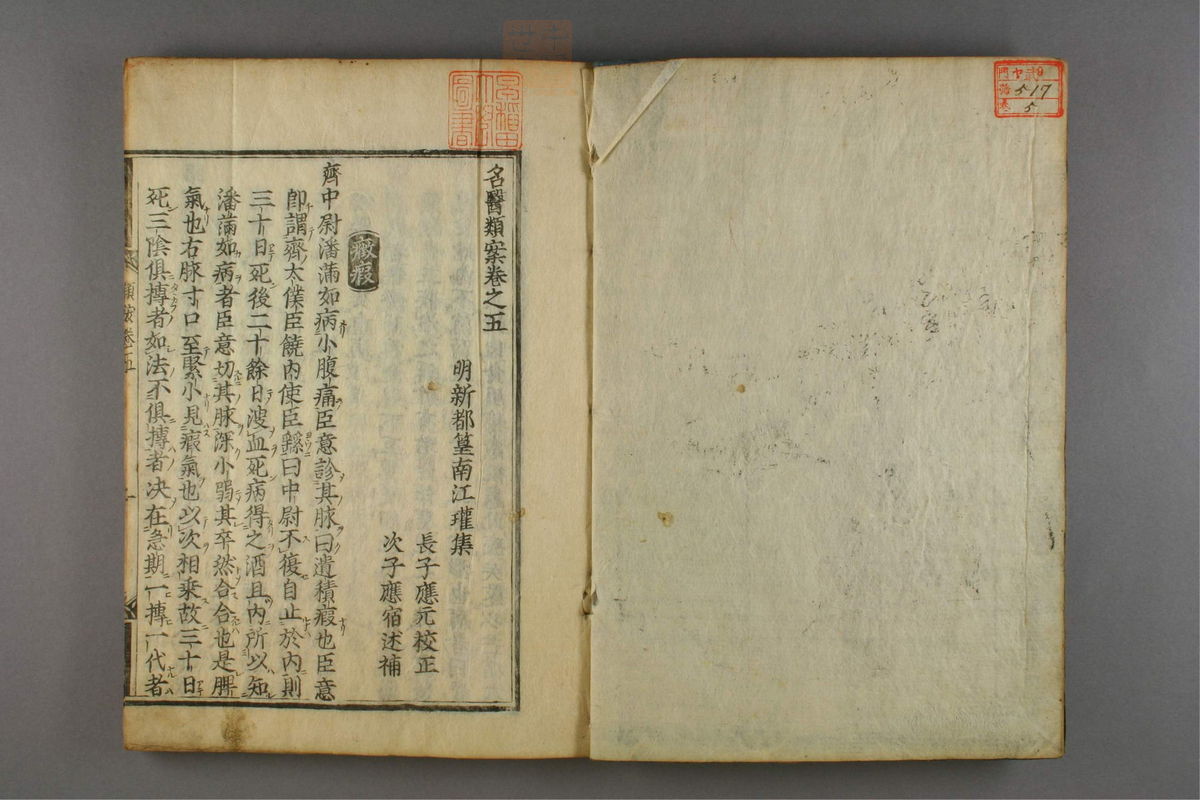 門 ヤ 9
號 517
卷 5
名醫類案卷之五
明新都篁南江瓘集
長子應元校正
次子應宿述補
癥瘕
齊中尉潘蒲如病小腹痛臣意診其脉曰遺積瘕也臣意
即謂齊太僕臣饒内使臣繇曰中尉不復自止於内則
三十日死後二十餘日溲血死病得之酒且内所以知
潘蒲如病者臣意切其脉深小弱其卒然合合也是脾
氣也右脉寸口至緊小見瘕氣也以次相乘故三十日
死三陰俱摶者如法不俱摶者决在急期一摶一代者
類案卷五